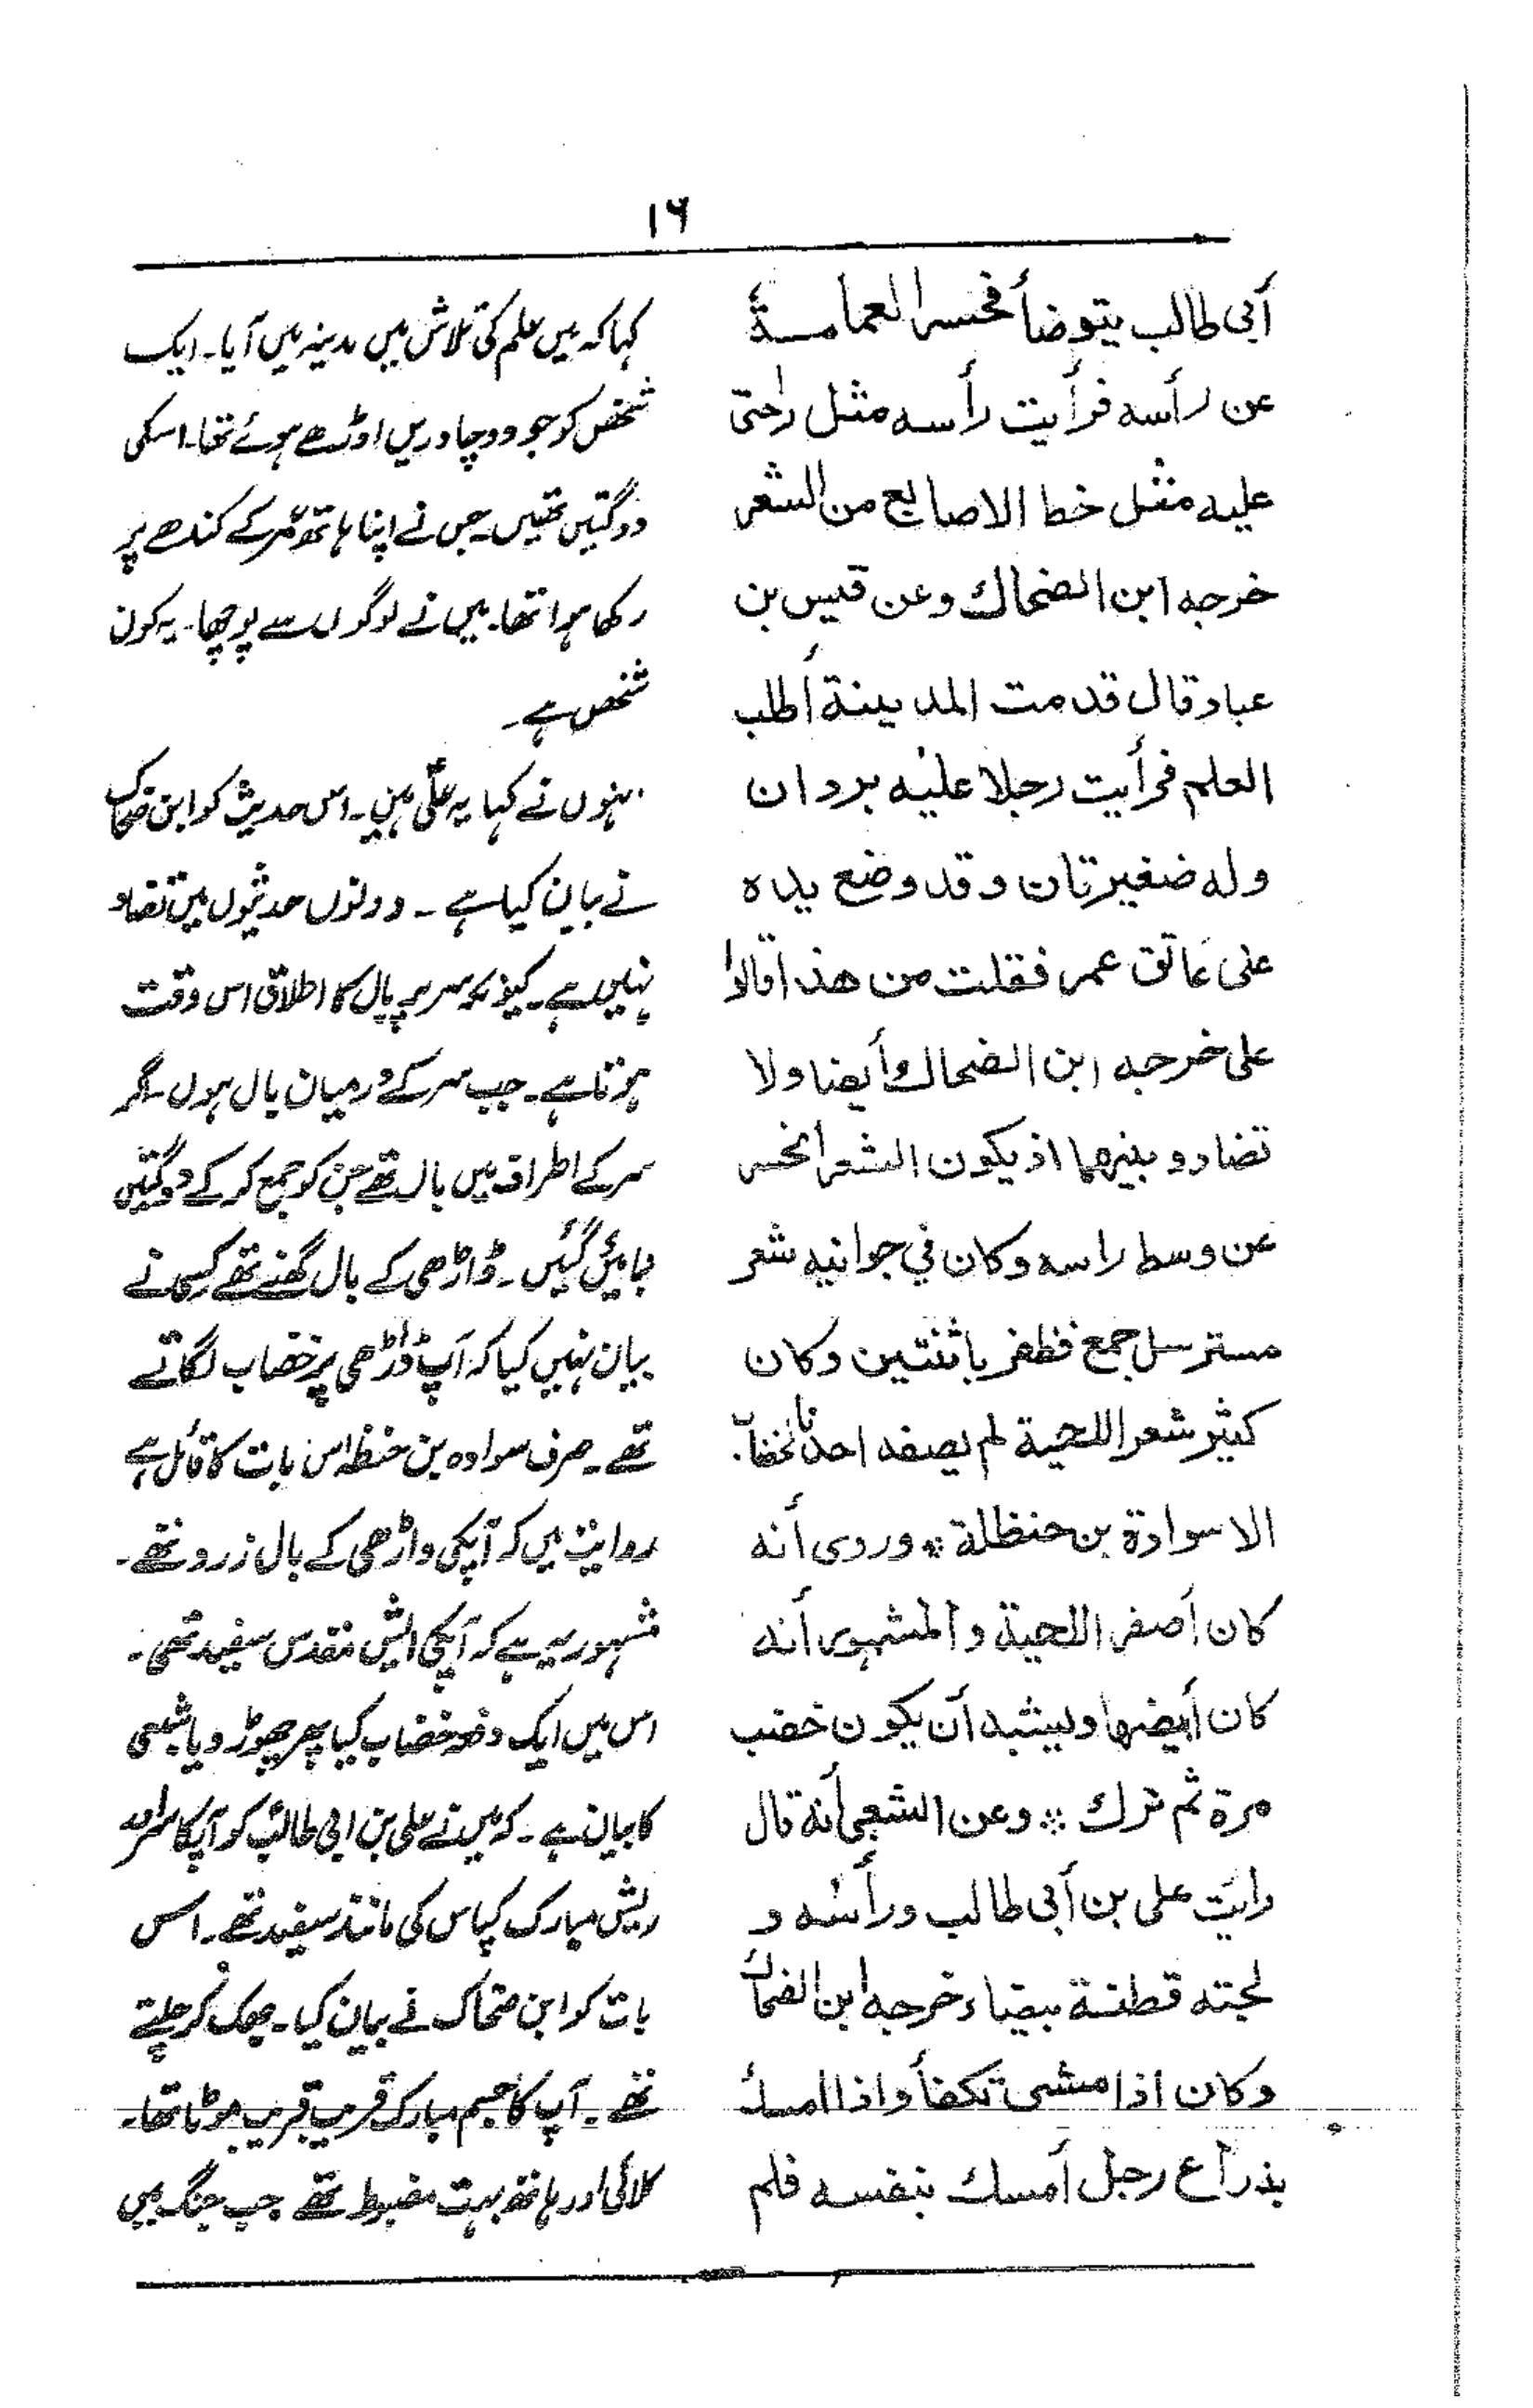 ١٦
أبى طالب يتوضأ فحسر العمامة
عن رأسه فرأيت رأسه مثل راحتى
عليه مثل خط الاصابع من الشعر
خرجه ابن الضحاك وعن قيس بن
عباد قال قدمت المدينة أطلب
العلم فرأيت رجلا عليه بردان
وله ضفيرتان وقد وضع يده
على عاتق عمر فقلت من هذا قالوا
على خرجه ابن الضحاك وأيضا ولا
تضادو بينهما اذ يكون الشعر أنحسر
عن وسط راسه وكان في جوانبه شعر
مسترسل جمع فظفر باثنتين وكان
كثير شعر اللحية لم يصفه احد بالخضاب
الا سوادة بن حنظلة * وروى أنه
كان أصفر اللحية والمشهور أنه
كان أبيضها ويشبه أن يكون خضب
مرة ثم ترك * وعن الشعبي أنه قال
رايت على بن أبى طالب ورأسه و
لحيته قطنة بيضاء خرجه ابن الضحاك
وكان اذا مشى تكفأ واذا امسك
بذراع رجل أمسك بنفسه فلم
کہا کہ میں علم کی تلاش میں مدینہ میں آیا۔ ایک
شخص کو جو دو چادریں اوڑھے ہوئے تھا۔ اسکی
دو گتیں تھیں۔ جس نے اپنا ہاتھ عمر کے کندھے پر
رکھا ہوا تھا۔ میں نے لوگوں سے پوچھا۔ یہ کون
شخص ہے۔
انہوں نے کہا یہ علی ہیں۔ اس حدیث کو ابن ضحاک
نے بیان کیا ہے ۔ دونوں حدیثوں میں تضاد
نہیں ہے۔ کیونکہ سر پر بال کا اطلاق اس وقت
ہوتا ہے۔ جب سر کے درمیان بال ہوں۔ مگر
سر کے اطراف میں بال تھے جن کو جمع کر کے دو گتیں
بنائیں گئیں ۔ ڈاڑھی کے بال گھنے تھے کسی نے
بیان نہیں کیا کہ آپ ڈاڑھی پر خضاب لگاتے
تھے۔ صرف سوادہ بن حنظلہ اس بات کا قائل ہے
روایت ہیں کہ آپکی داڑھی کے بال زرد تھے۔
مشہور یہ ہے کہ آپکی ریش مقدس سفید تھی۔
اس میں ایک دفعہ خضاب کیا پھر چھوڑ دیا شعبی
کا بیان ہے ۔ کہ میں نے علی بن ابی طالب کو آپکا سر اور
ریش مبارک کپاس کی مانند سفید تھے۔ اس
بات کو ابن ضحاک نے بیان کیا۔ جھک کر چلتے
تھے۔ آپ کا جسم مبارک قریب قریب موٹا تھا۔
کلائی اور ہاتھ بہت مضبوط تھے جب جنگ میں